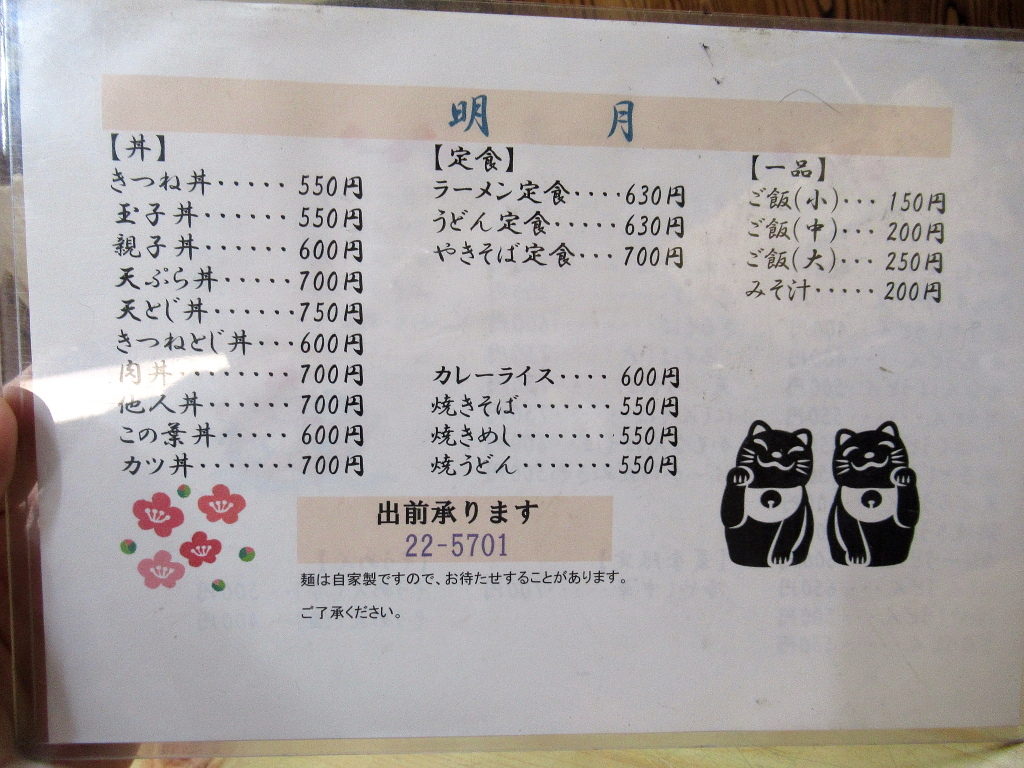 明 月
【丼】
きつね丼・・・・・550円
玉子丼・・・・・・550円
親子丼・・・・・・600円
天ぷら丼・・・・・700円
天とじ丼・・・・・750円
きつねとじ丼・・・600円
肉丼・・・・・・・・700円
他人丼・・・・・・700円
この葉丼・・・・・600円
カツ丼・・・・・・・700円
【定食】
ラーメン定食・・・・630円
うどん定食・・・・・630円
やきそば定食・・・700円
カレーライス・・・・600円
焼きそば・・・・・・・550円
焼きめし・・・・・・・・550円
焼うどん・・・・・・・550円
【一品】
ご飯(小)・・・150円
ご飯(中)・・・200円
ご飯(大)・・・250円
みそ汁・・・・・200円
出前承ります
22-5701
麺は自家製ですので、お待たせすることがあります。
ご了承ください。